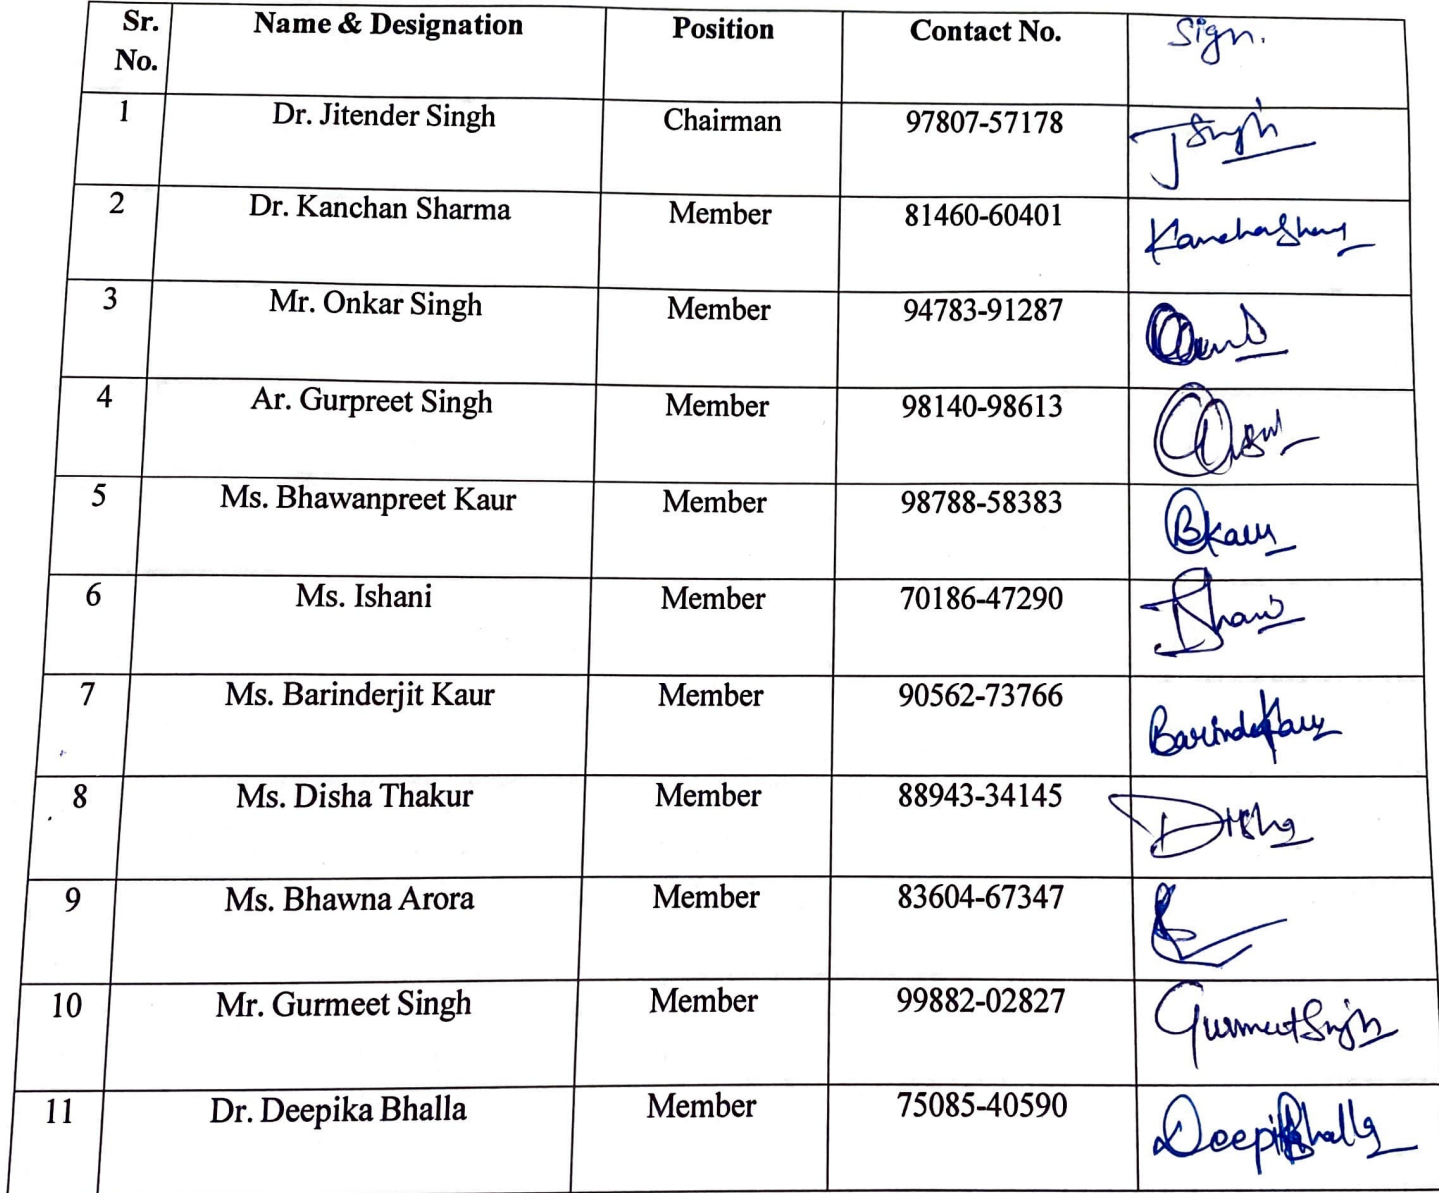 Sr. No. Name & Designation Position Contact No. Sign.
1 Dr. Jitender Singh Chairman 97807-57178 JSingh
2 Dr. Kanchan Sharma Member 81460-60401
3 Mr. Onkar Singh Member 94783-91287
4 Ar. Gurpreet Singh Member 98140-98613
5 Ms. Bhawanpreet Kaur Member 98788-58383 BKaur
6 Ms. Ishani Member 70186-47290 Ishani
7 Ms. Barinderjit Kaur Member 90562-73766
8 Ms. Disha Thakur Member 88943-34145 Disha
9 Ms. Bhawna Arora Member 83604-67347
10 Mr. Gurmeet Singh Member 99882-02827 Gurmeet Singh
11 Dr. Deepika Bhalla Member 75085-40590 Deepika Bhalla